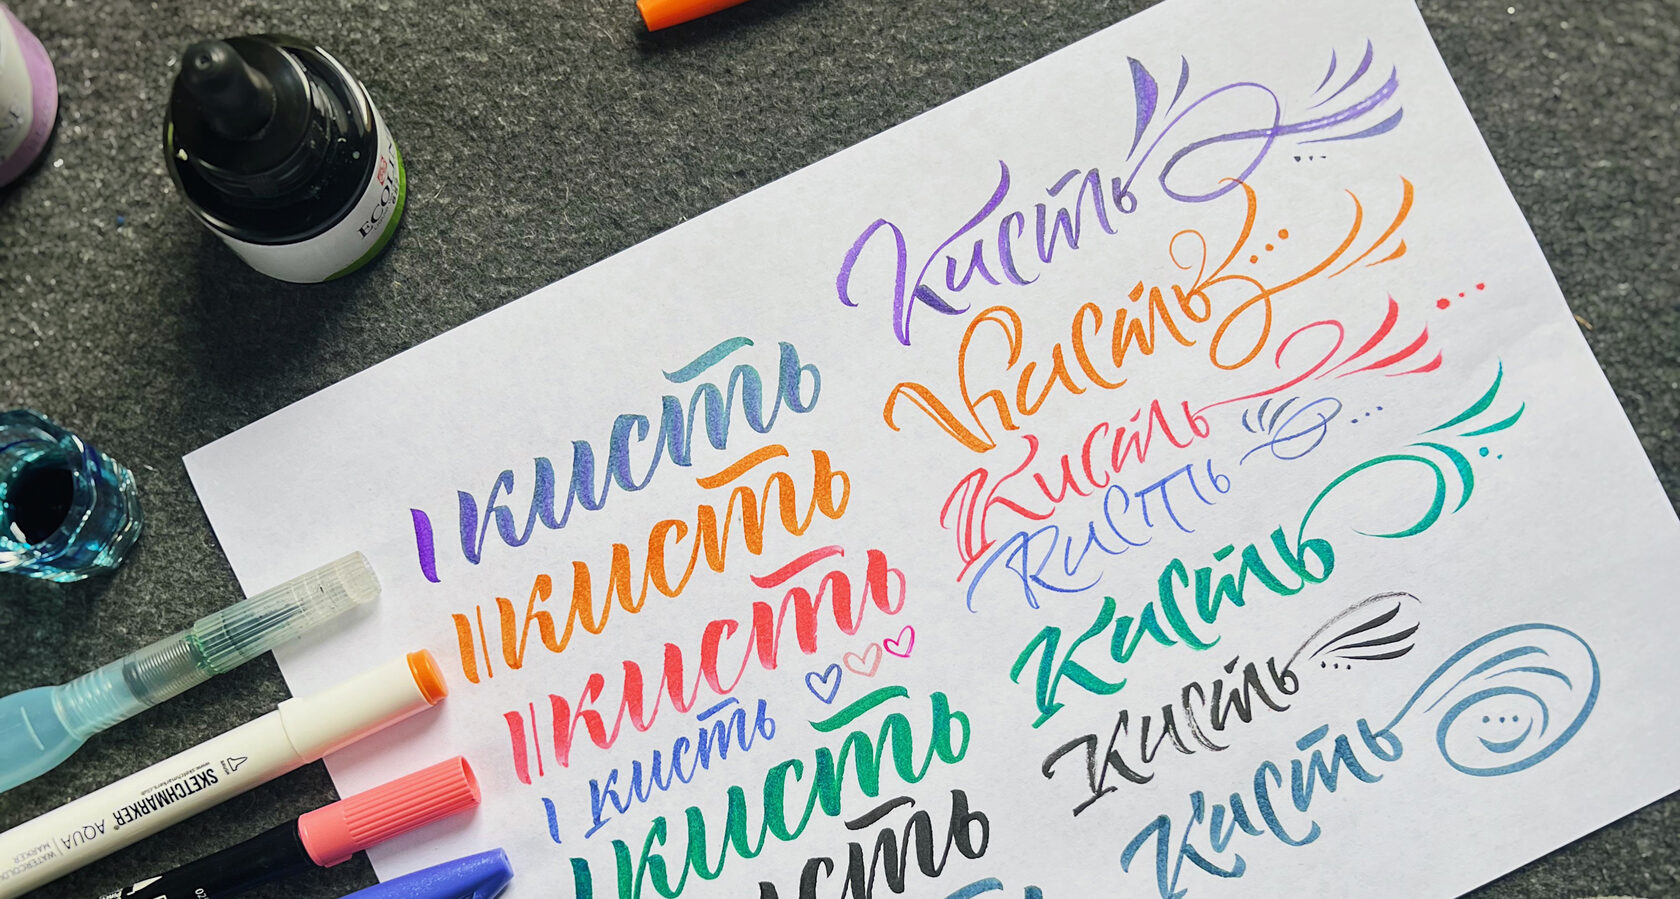 ECOLIN
кисть
кисть
кисть
кисть
кисть
исть
Кисть
Кисть
Кисть
Кисть
Кисть
Кисть
Кисть
SKETCHMARKER® AQUA
WATERCOLOR
MARKER